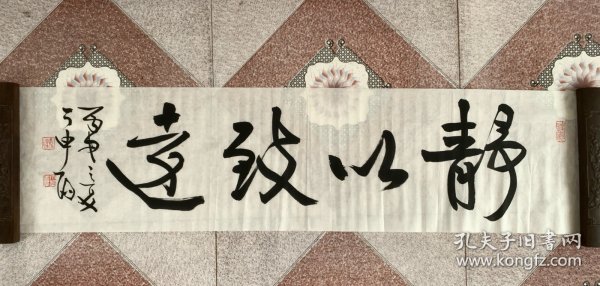 静以致远
丙申之夏
孔夫子旧书网
www.kongfz.com